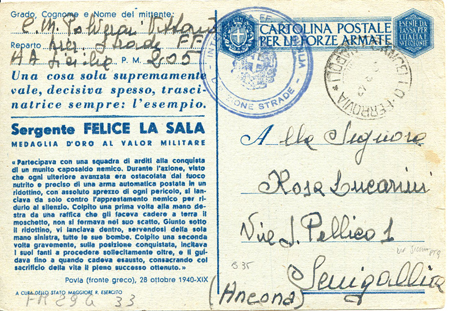 Grado, Cognome e Nome del mittente:
C. M. Polveri Vittorio
Reparto Strade
HA Sicilia P. M. 205
Una cosa sola supremamente
vale, decisiva spesso, trasci-
natrice sempre: l'esempio.
Sergente FELICE LA SALA
MEDAGLIA D'ORO AL VALOR MILITARE
«Partecipava con una squadra di arditi alla conquista
di un munito caposaldo nemico. Durante l'azione, visto
che ogni ulteriore avanzata era ostacolata dal fuoco
nutrito e preciso di una arma automatica postata in un
ridottino, con assoluto sprezzo di ogni pericolo, si lan-
ciava da solo contro l'appostamento nemico per ri-
durlo al silenzio. Colpito una prima volta alla mano de-
stra da una raffica che gli faceva cadere a terra il
moschetto, non si fermava nel suo scatto, Giunto sotto
il ridottino, vi lanciava dentro, servendosi della sola
mano sinistra, tutte le sue bombe. Colpito una seconda
volta gravemente, sulla posizione conquistata, incitava
i suoi fanti a procedere sollecitamente oltre, e li gui-
dava fino a quando cadeva esausto, consacrando col
sacrificio della vita il pieno successo ottenuto.»
Povla (fronte greco), 28 ottobre 1940-XIX
A CURA DELLO STATO MAGGIORE R. ESERCITO
33
CARTOLINA POSTALE
PER LE FORZE ARMATE
ESENTE DA
TASSA PER
L'ITALIA
STRADE
FERROVIA
Alla Signora
Rosa Lucarini
Vie S. Pellico 1
Senigallia
(Ancona)